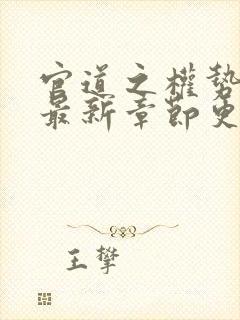 官道之權勢
最新章節更
王攀